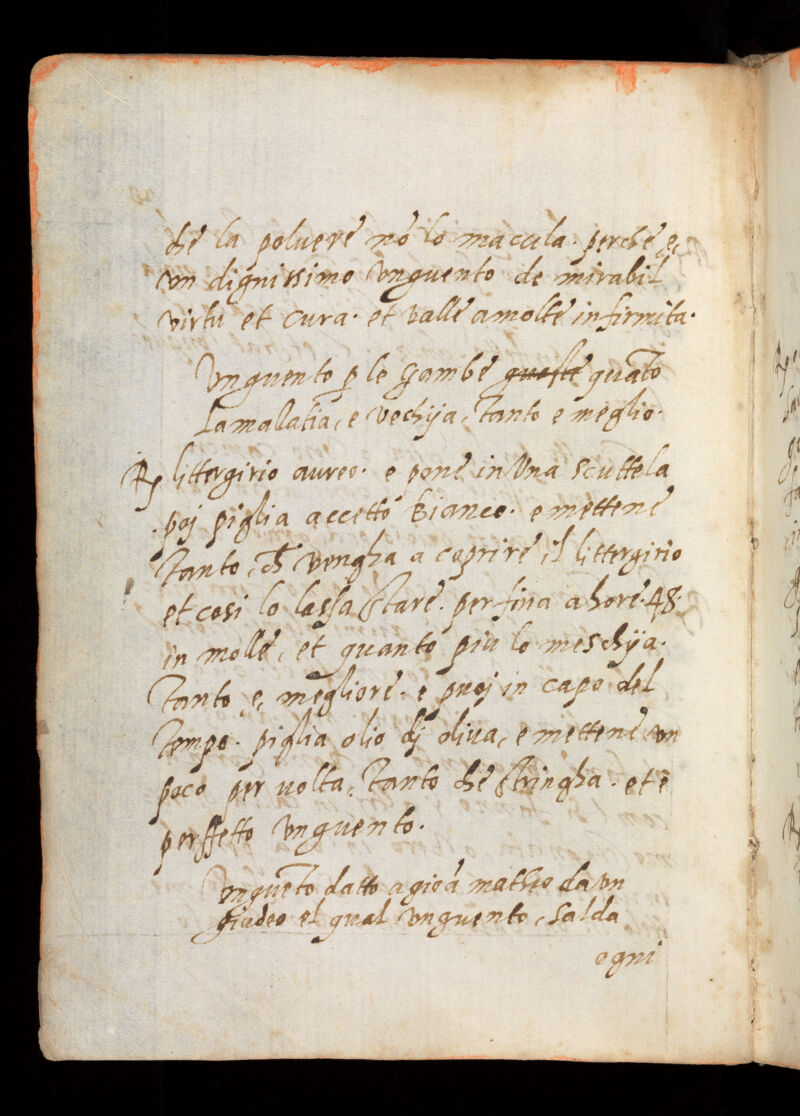 che la poluere nō lo macula. perche e,
un dignissimo unguento de mirabil
virtu et cura. et valle a molte infirmita.
Unguento ꝑ le gambe queste quāto
la malatia, e vechija, tanto e meglio.
℞ littergirio aureo. e pone in una scuttela
poj piglia accetto bianco. e mettene
tanto, ch̄ vengha a coprire il littergirio
et cosi lo lassa stare. per fina a hore. 48.
in molle, et quanto piu lo meschija.
tanto e, megliore. e puoj in capo del
tempo. piglia olio dj oliua, e mettene un
poco per uolta, tanto che stringha. et e
perffetto unguento.
Unguēto datto a gioā matheo da un
giudeo el qual unguento, salda
ogni